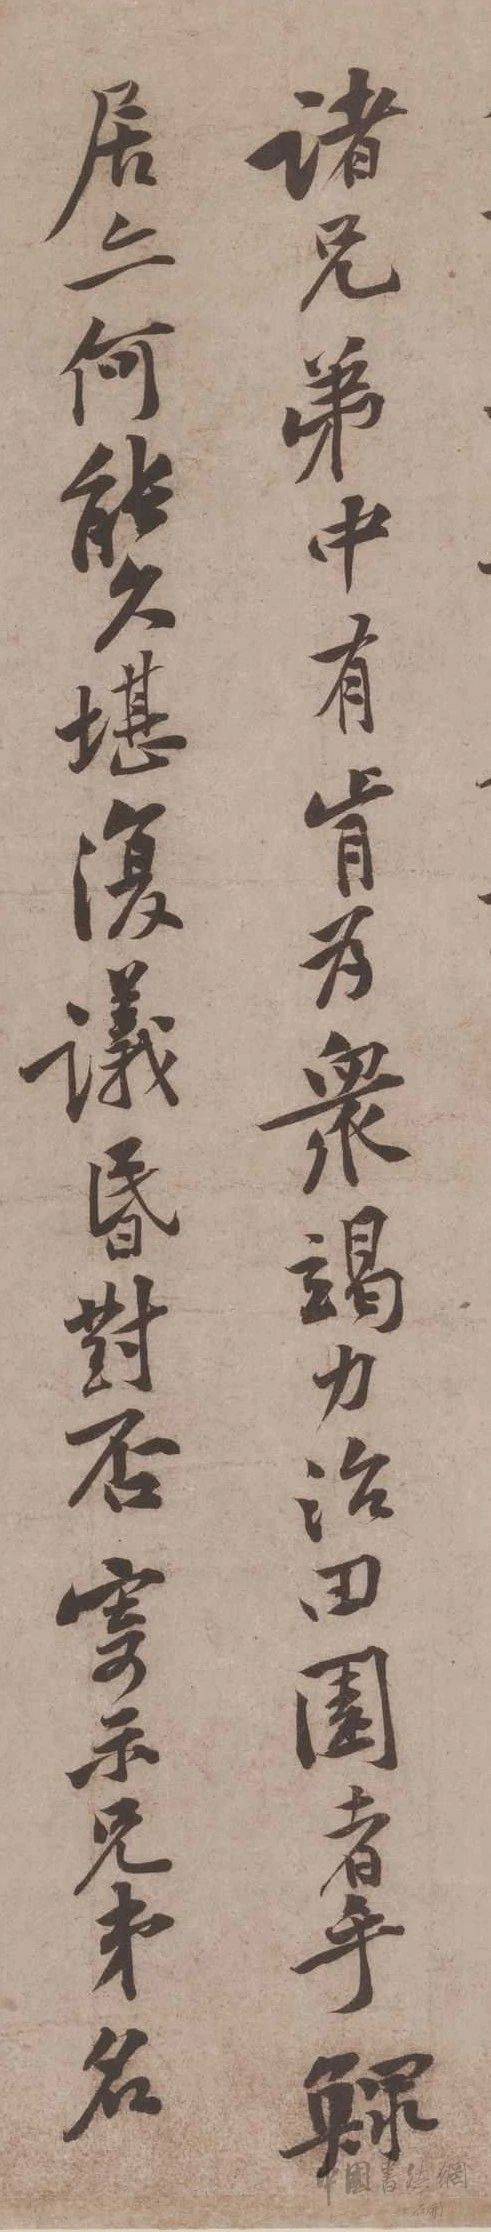 诸兄弟中有肯为衆竭力治田園者乎鰥
居亦何能久堪復議昏對否寄示兄弟名
中國書法網